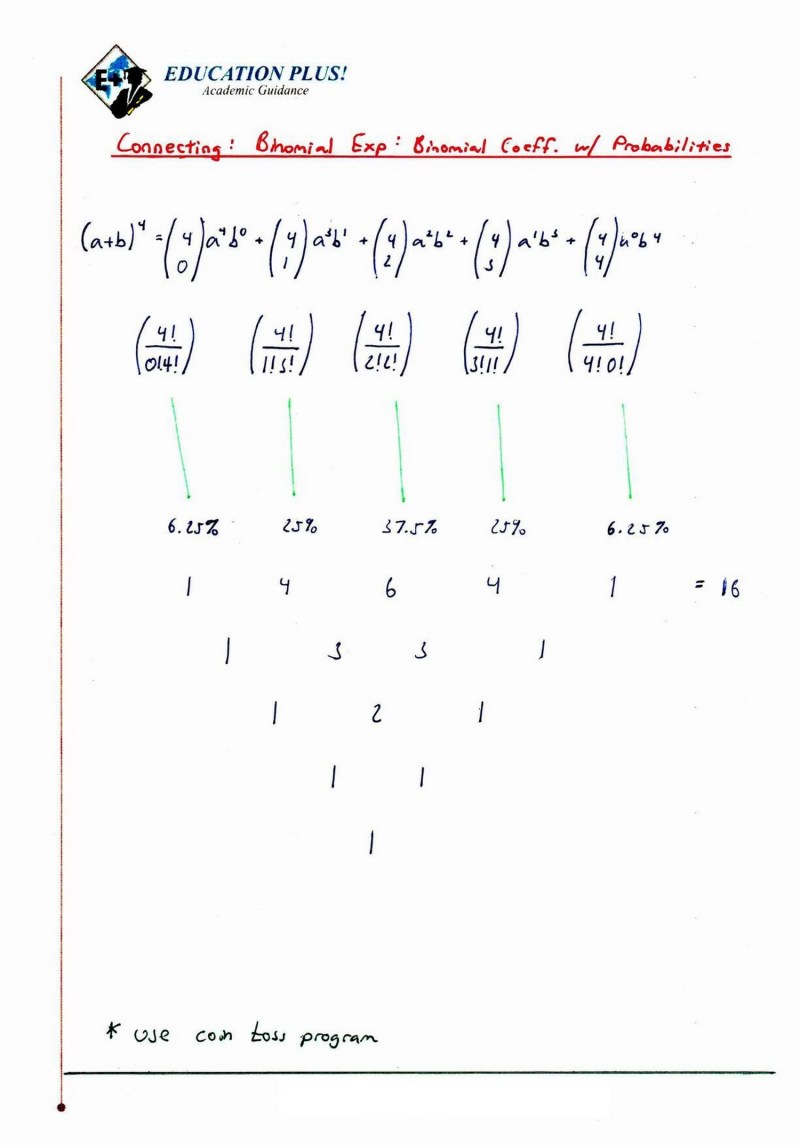 E+ EDUCATION PLUS!
Academic Guidance
Connecting: Binomial Exp: Binomial Coeff. w/ Probabilities
(a+b)⁴ = (4 0)a⁴b⁰ + (4 1)a³b¹ + (4 2)a²b² + (4 3)a¹b³ + (4 4)a⁰b⁴
(4!/0!4!) (4!/1!3!) (4!/2!2!) (4!/3!1!) (4!/4!0!)
6.25% 25% 37.5% 25% 6.25%
1 4 6 4 1 = 16
1 3 3 1
1 2 1
1 1
1
* use coin toss program